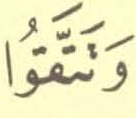 وَتَتَّقُوا